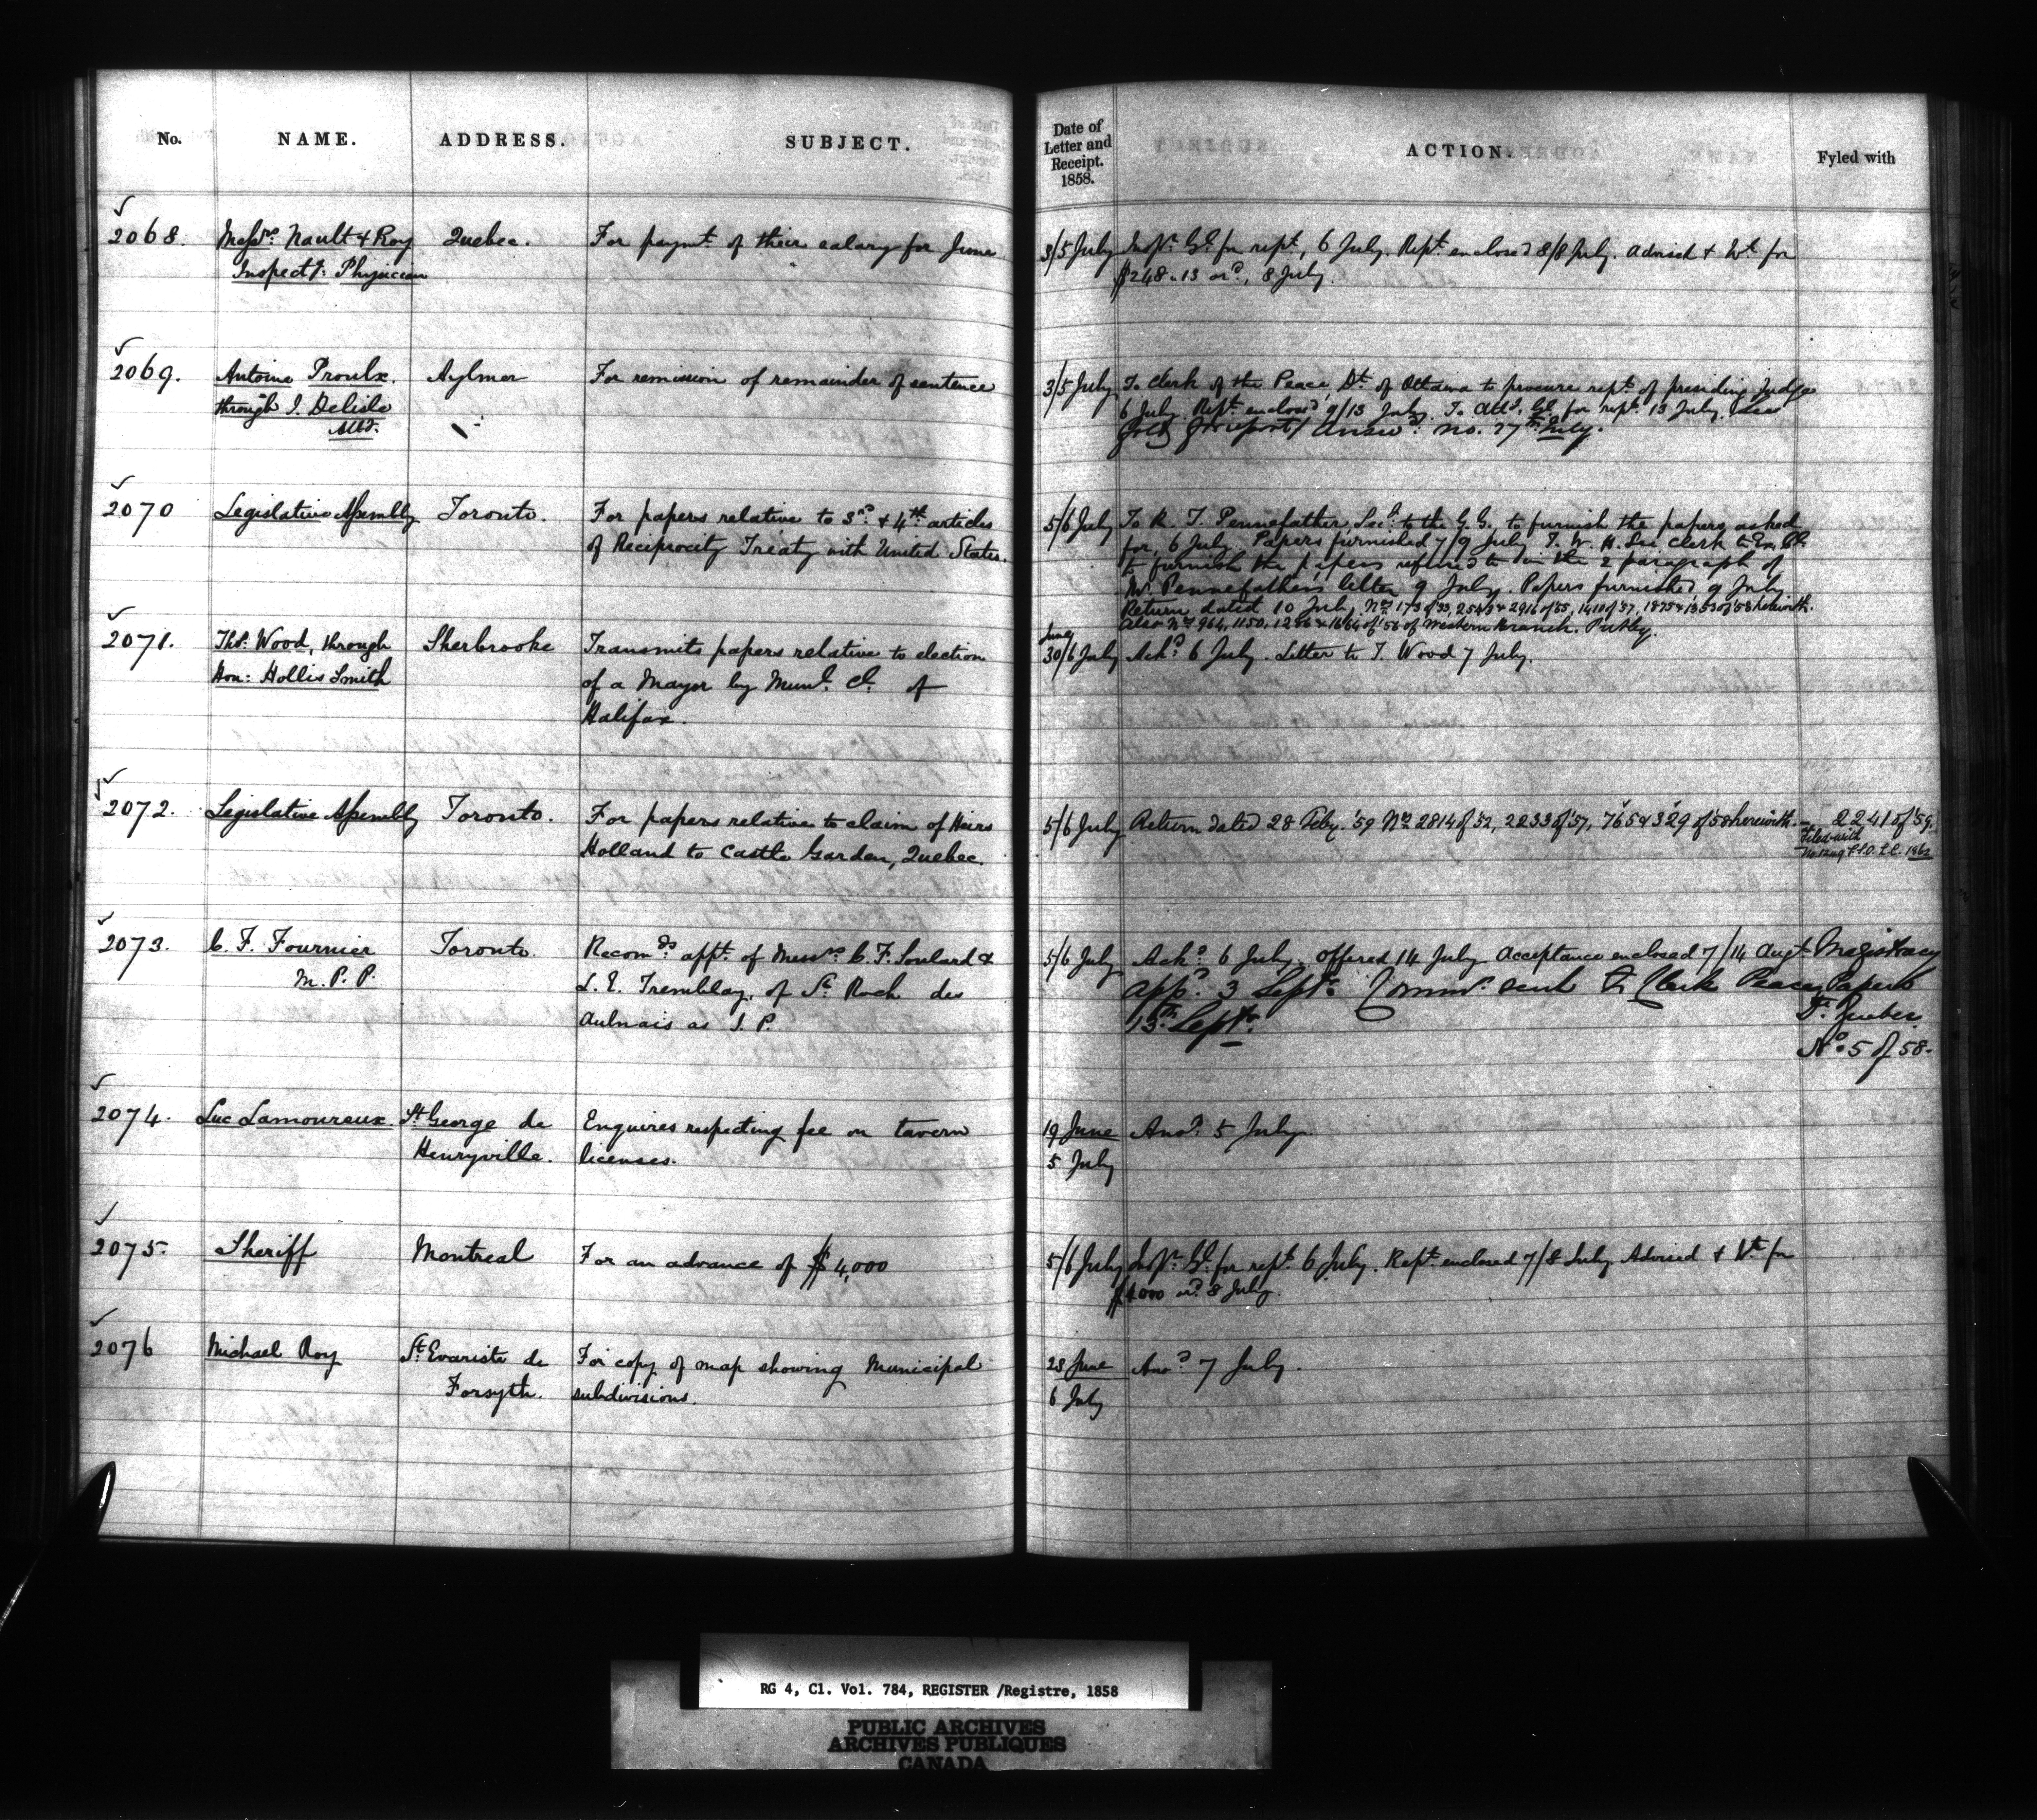 No. NAME. ADDRESS. SUBJECT. Date of Letter and Receipt. 1858. ACTION. Fyled with
2068. Messrs. Nault & Roy Quebec. For paymt. of their salary for June 3/5 July Inspr. Gl. for rept., 6 July. Rept. enclosed 8/8 July. Advised & Wt. for
Inspectg. Physician $248.13 8 July.
2069. Antoine Proulx. Aylmer For remission of remainder of sentence 3/5 July To Clerk of the Peace, Dt. of Ottawa to procure rept. of presiding Judge
through I. Delisle 6 July. Rept. enclosed 9/13 July. To Atty. Gl. for rept. 13 July. See
for report / Answd. no. 27th July.
2070 Legislative Assembly Toronto. For papers relative to 3rd. & 4th articles 5/6 July To R. T. Pennefather, Secy. to the G. G. to furnish the papers asked
of Reciprocity Treaty with United States. for, 6 July. Papers furnished 7/9 July T. W. H. Lee Clerk to Ex. Cl.
to furnish the papers referred to in the 2 paragraph of
Mr. Pennefather's letter 9 July. Papers furnished 9 July
Return dated 10 July, Nos. 173 of 53, 2543 & 2916 of 55, 1410 of 57, 1875 & 1353 of 58 herewith.
Also Nos. 964, 1150, 1286 & 1664 of 56 of Western Branch.
2071. Thos. Wood, through Sherbrooke Transmits papers relative to election June 30/6 July Ackd. 6 July. Letter to T. Wood 7 July.
Hon: Hollis Smith of a Mayor by Munl. Cl. of
Halifax.
2072. Legislative Assembly Toronto. For papers relative to claim of Heirs 5/6 July Return dated 28 Feby. '59 Nos. 2814 of '52, 2233 of '57, 765 & 329 of '58 herewith. 2241 of '59.
Holland to Castle Garden, Quebec. Filed with
No 1209 1862
2073. C. F. Fournier Toronto. Recomds. appt. of Messrs. C. F. Soulard & 5/6 July Ackd. 6 July. offered 14 July. Acceptance enclosed 7/14 Augt. Magistracy
M. P. P. L. E. Tremblay, of St. Roch des appd. 3 Septr. Commn. sent to Clerk Peace Papers
Aulnais as J. P. 13th Septr. Dt. Quebec
No. 5 of 58.
2074. Luc Lamoureux. St. George de Enquires respecting fee on tavern 19 June Ansd. 5 July.
Henryville. licenses. 5 July
2075. Sheriff Montreal For an advance of $4,000 5/6 July Inspr. Gl. for rept. 6 July. Rept. enclosed 7/8 July. Advised & Wt. for
$4000 8 July.
2076 Michael Roy St. Evariste de For copy of map showing Municipal 23 June Ansd. 7 July.
Forsyth. subdivisions. 6 July
RG 4, C1. Vol. 784, REGISTER /Registre, 1858
PUBLIC ARCHIVES
ARCHIVES PUBLIQUES
CANADA